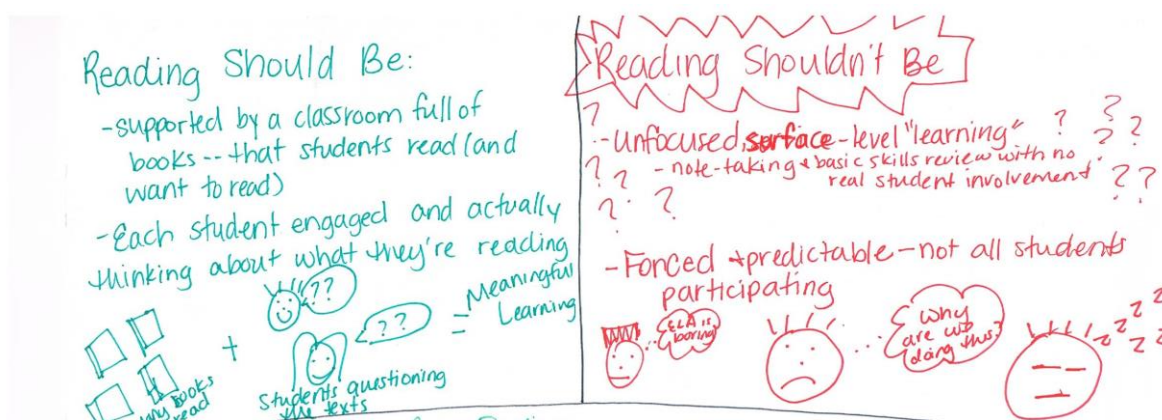 Reading Should Be:
-supported by a classroom full of
books -- that students read (and
want to read)
-Each student engaged and actually
thinking about what they're reading
??
??
= Meaningful
Learning
+
books
read
Students questioning
the texts
Reading Shouldn't Be
-unfocused, surface-level "learning"
- note-taking + basic skills review with no
real student involvement
? ? ? ? ? ? ? ? ? ? ?
-Forced + predictable - not all students
participating
ELA is
boring
why
are we
doing this?
z z z z z z z